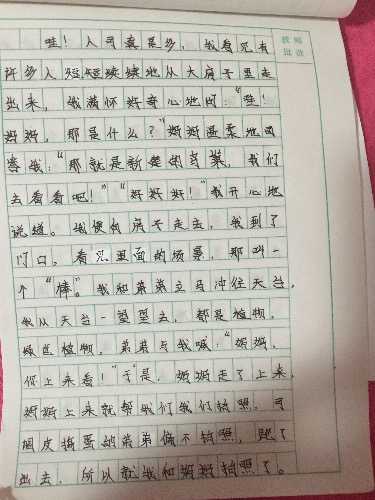 教师
批语
哇！人可真是多，我看见有
许多人陆陆续续地从大房子里走
出来，我满怀好奇心地问：“哇！
妈妈，那是什么？”妈妈温柔地回
答我：“那就是新建的，我们
去看看吧！”“好好好！”我开心地
说道。我便向房子走去，我到了
门口，看见里面的场景，那叫一
个“棒”。我和弟弟立马冲住天台，
我从天台一望望去，都是植物，
绿色植物，弟弟与我喊：“妈妈，
你上来看！”于是，妈妈走了上来，
妈妈上来就帮我们我们拍照。可
调皮捣蛋的弟弟偏不拍照，跑了
出去，所以就我和妈妈拍照了。